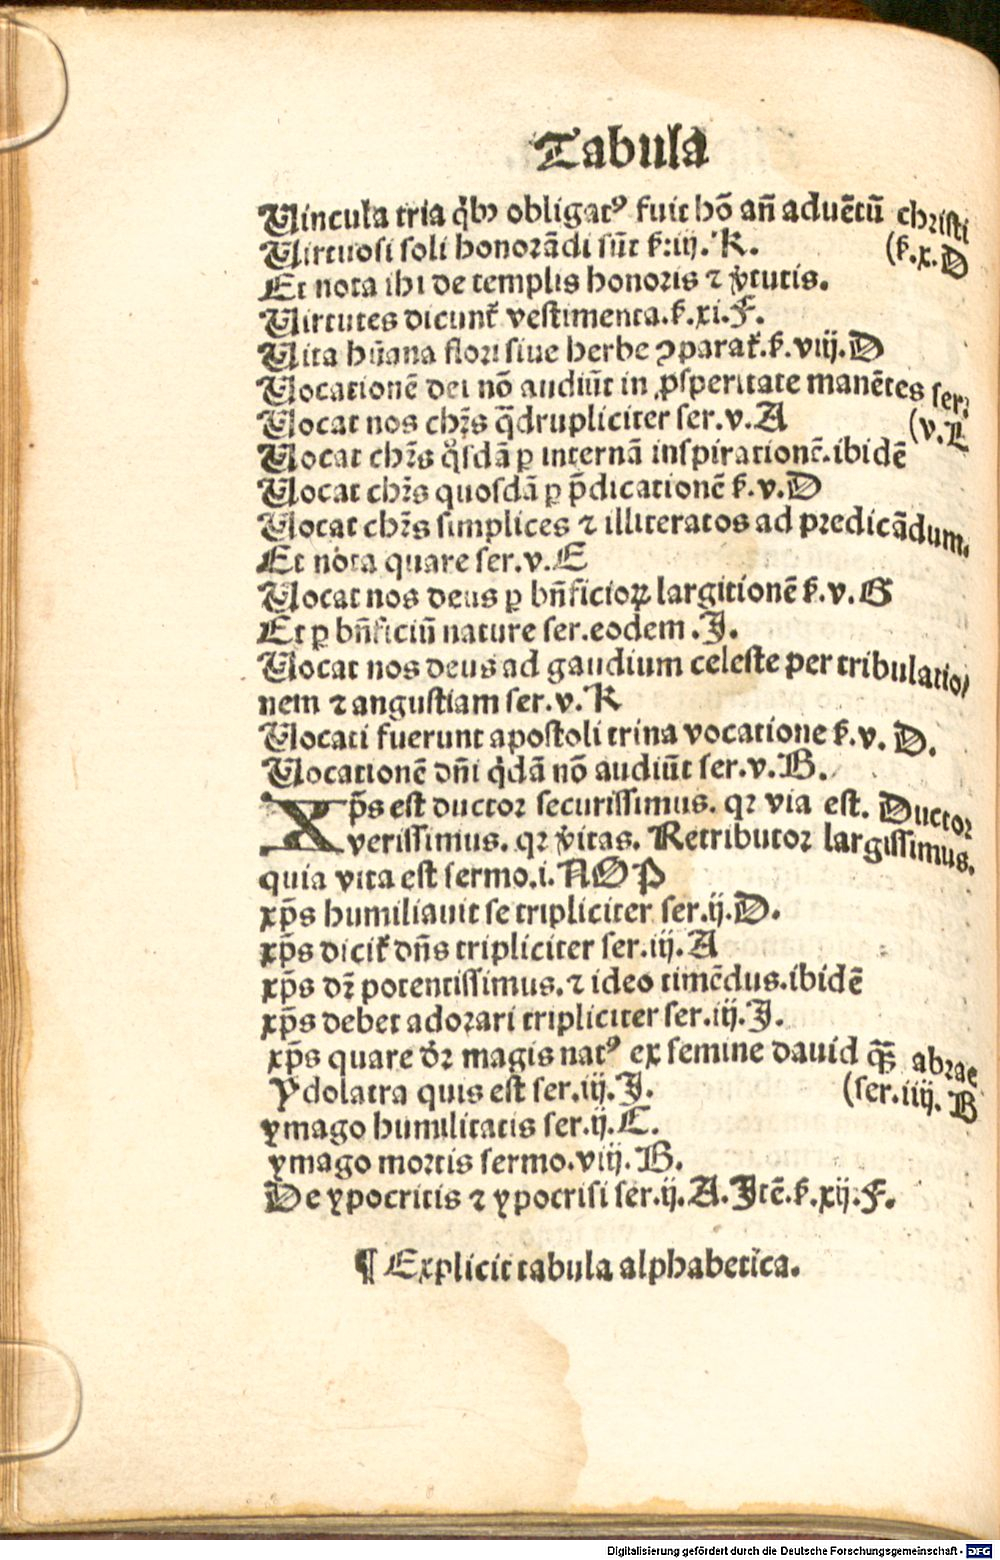 Tabula
Vincula tria qͥbꝫ obligatꝰ fuit hō añ aduētū christi
Virtuosi soli honorādi sūt ẜ.iij.K. (ẜ.x.D
Et nota ibi de templis honoris ⁊ v̓tutis.
Virtutes dicunt᷑ vestimenta.ẜ.xi.F.
Vita hūana flori siue herbe ꝯparat᷑.ẜ.viij.D
Vocationē dei nō audiūt in ꝓsperitate manētes ser⸗
Vocat nos chr̄s q̄drupliciter ser.v.A (v.L
Vocat chr̄s qͦsdā ꝑ internā inspirationē.ibidē
Vocat chr̄s quosdā ꝑ p̄dicationē ẜ.v.D
Vocat chr̄s simplices ⁊ illiteratos ad predicādum.
Et nota quare ser.v.E
Vocat nos deus ꝑ bn̄ficioꝝ largitionē ẜ.v.G
Et ꝑ bn̄ficiū nature ser.eodem.J.
Vocat nos deus ad gaudium celeste per tribulatio/
nem ⁊ angustiam ser.v.K
Vocati fuerunt apostoli trina vocatione ẜ.v.D.
Vocationē dn̄i qͥdā nō audiūt ser.v.B.
Xp̄s est ductor securissimus. qꝛ via est. Ductor
verissimus. qꝛ v̓itas. Retributor largissimus.
quia vita est sermo.i.N O P
xp̄s humiliauit se tripliciter ser.ij.D.
xp̄s dicit᷑ dn̄s tripliciter ser.iij.A
xp̄s dr̄ potentissimus.⁊ ideo timēdus.ibidē
xp̄s debet adorari tripliciter ser.iij.J.
xp̄s quare dr̄ magis natꝰ ex semine dauid q̄ꝫ abrae
Ydolatra quis est ser.iij.J. (ser.iiij. B
ymago humilitatis ser.ij.C.
ymago mortis sermo.viij.B.
De ypocritis ⁊ ypocrisi ser.ij.A.Jtē.ẜ.xij.F.
¶ Explicit tabula alphabetica.
Digitalisierung gefördert durch die Deutsche Forschungsgemeinschaft - DFG